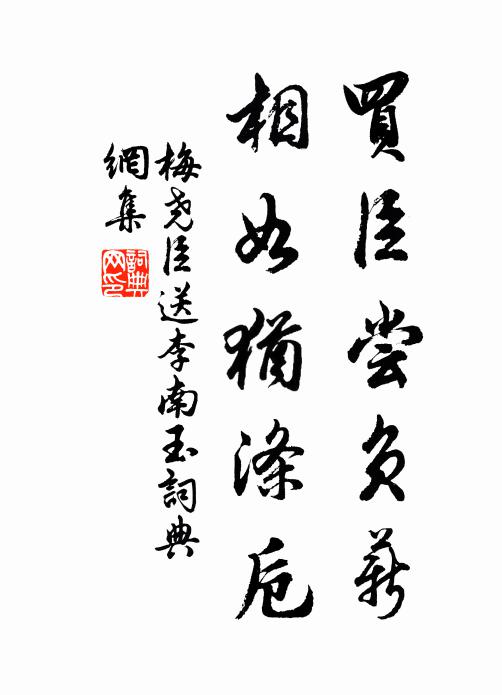 買臣尝負薪
相如猶滌卮
梅尧臣送李南玉詞典
網集
詞典网印